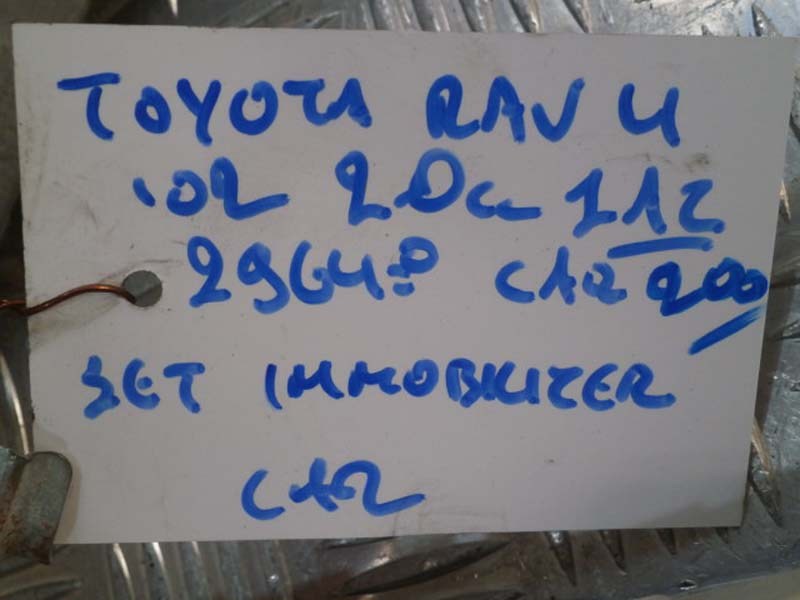 TOYOTA RAV 4
'02 2.0cc 1AZ
CAR 200
SET IMMOBILIZER
CAR